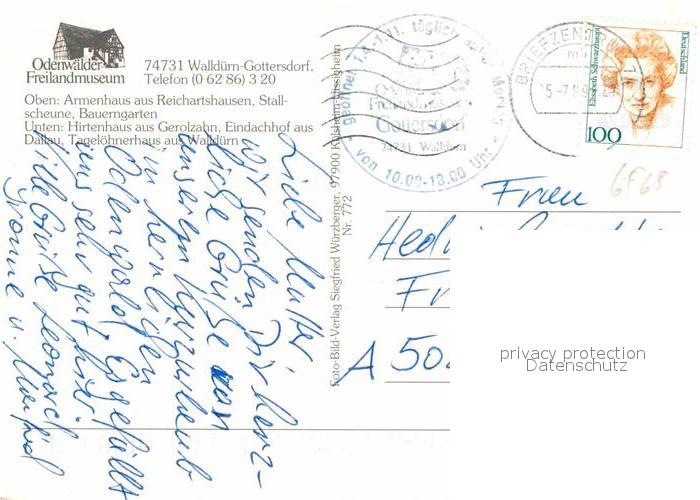 Odenwälder
Freilandmuseum
74731 Walldürn-Gottersdorf,
Telefon (0 62 86) 3 20
Oben: Armenhaus aus Reichartshausen, Stall-
scheune, Bauerngarten
Unten: Hirtenhaus aus Gerolzahn, Eindachhof aus
Dallau, Tagelöhnerhaus aus Walldürn
Liebe Mutter!
wir senden Dir herz-
liche Grüße von
unserem Kurzurlaub
im herrlichen
Odenwald. Es gefällt
uns sehr gut hier.
Viele Grüße Leonard
Yvonne u. Manfred
Foto-Bild-Verlag Siegfried Würzberger, 97900 Külsheim-Hüssigheim
Nr. 772
geöffnet 1.4.-1.11. täglich außer Montag
Odenwälder
Freilandmuseum
Gottersdorf
74731 Walldürn
von 10.00-18.00 Uhr
BRIEFZENTRUM
Deutschland
Elisabeth Schwarzhaupt
100
6F68
Frau
A 50
privacy protection
Datenschutz